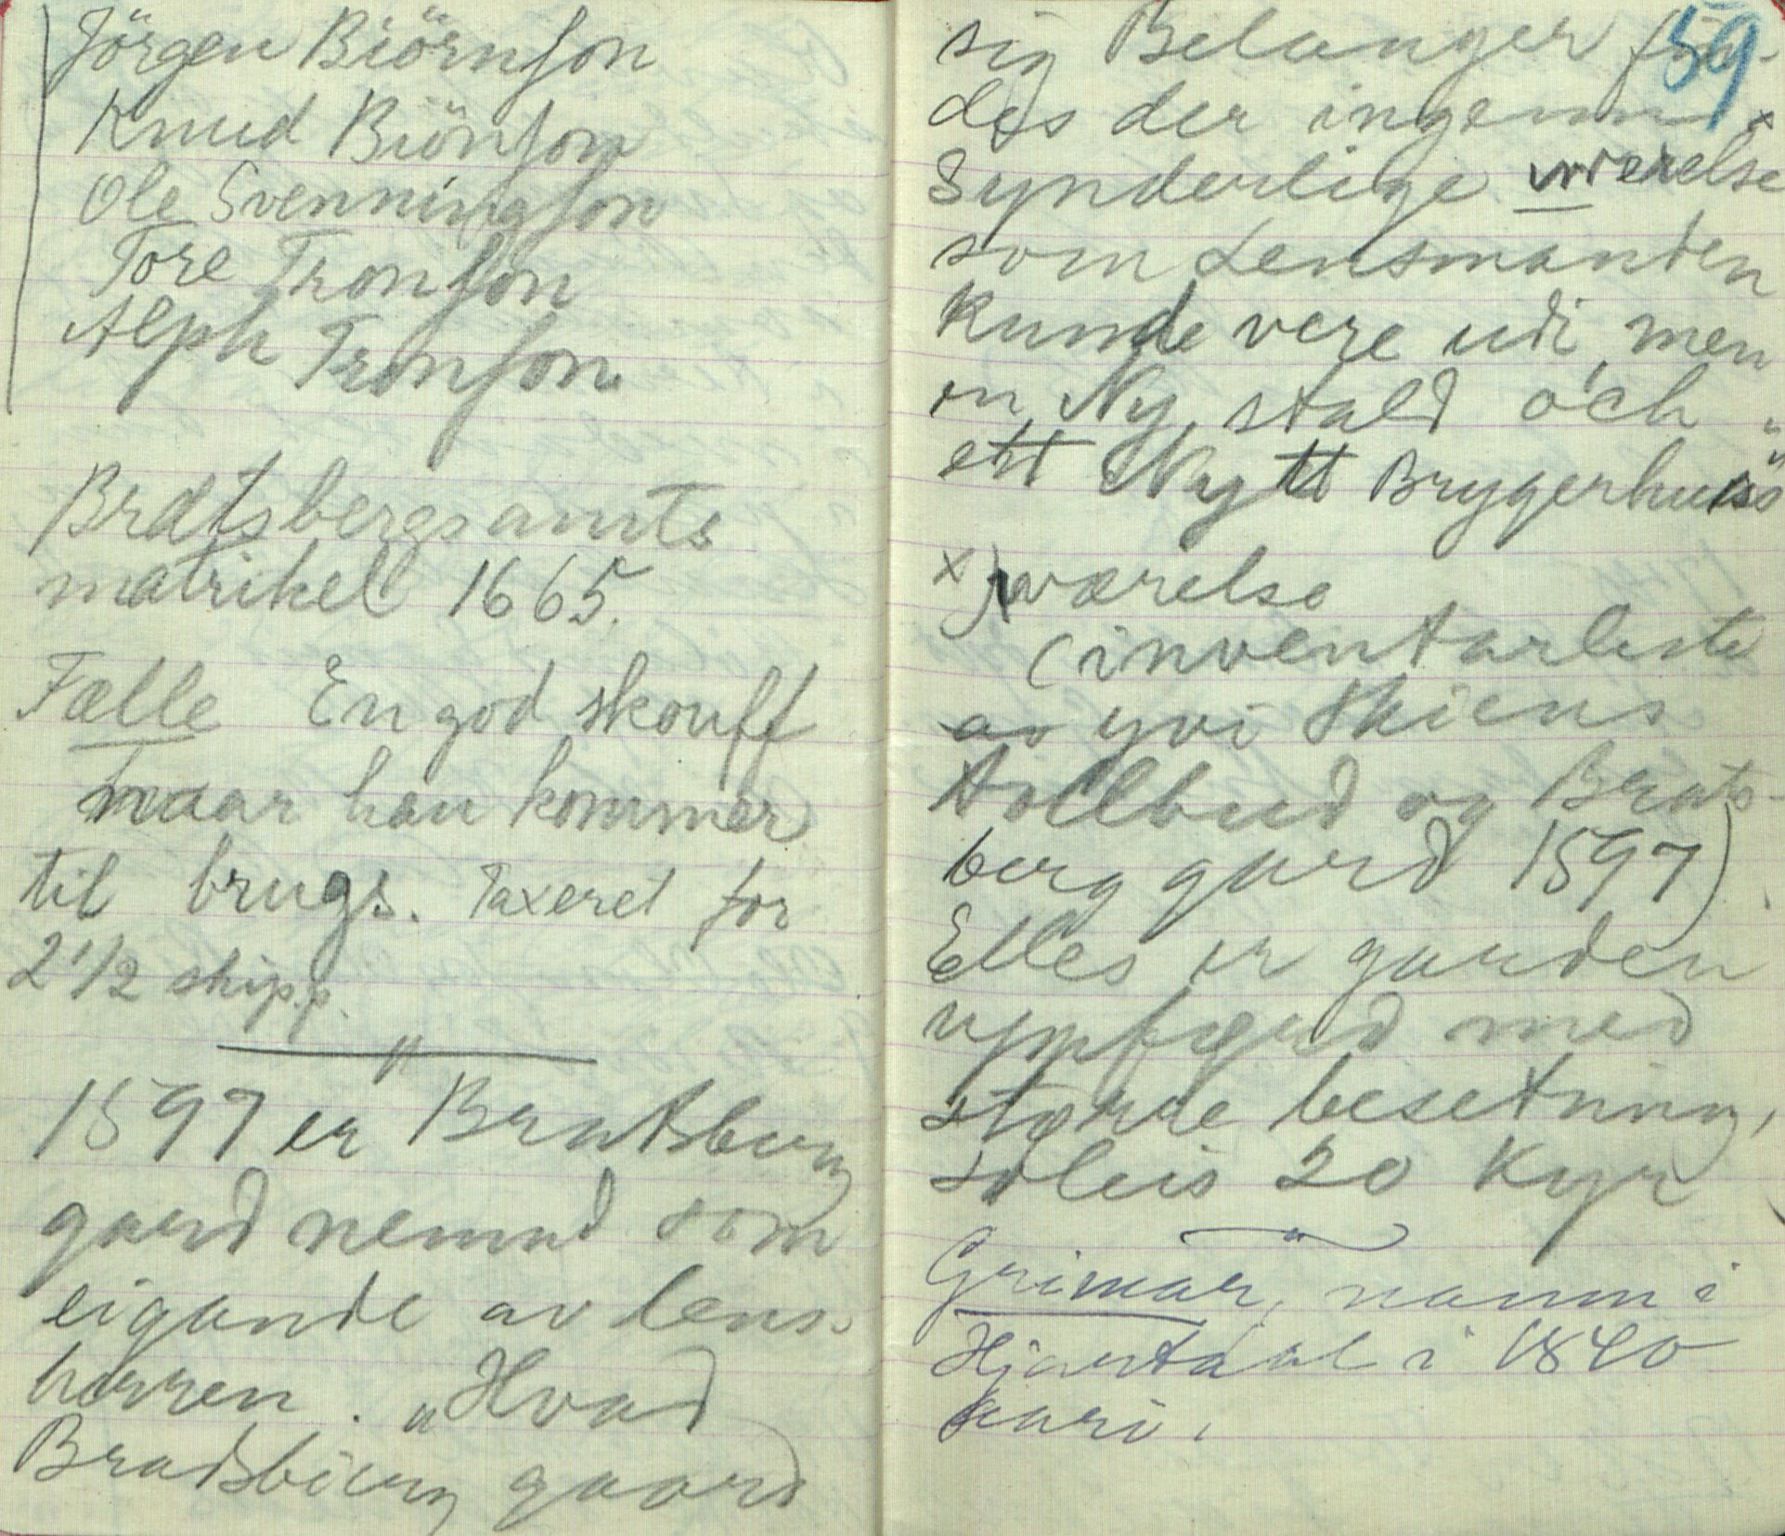 Jörgen Biörnson
Knud Biönson
Ole Svenningson
Tore Tronson
Alph Tronson
Bratsbergs amts
matrikel 1665.
Fælle En god skouff
naar han kommer
til brugs. Taxeret for
2 1/2 skip.p.
1597 er Bratsberg
gard nemnd som
eigande av lens-
herren. „Hvad
Bradsbierg gaard
59
sig Belanger fin-
des der ingenn
Synderlige værelse x
som Lensmanden
kunde vere udi, men
en Ny stald och
ett Nytt Brygerhuss"
x) værelse
(inventarliste
av yvi Skiens
tollbud og Brats-
berg gard 1597)
Elles er garden
uppførd med
større besetning,
soleis 20 Kyr
Grimar, namn i
Hjartdal i 1840
aari.